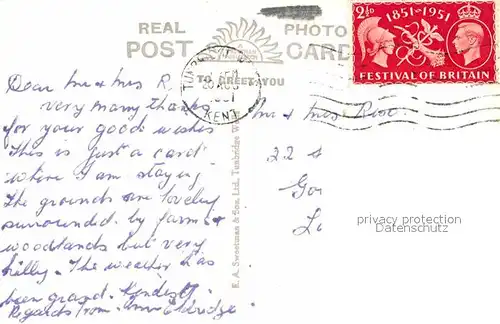 REAL PHOTO
POST CARD
TO GREET YOU
1851-1951
2½D
FESTIVAL OF BRITAIN
TUNBRIDGE
1951
KENT
Dear Mr & Mrs R.
very many thanks
for your good wishes
This is just a card
where I am staying.
The grounds are lovely
surrounded by farms &
woodlands but very
hilly. The weather has
been grand. Kindest
Regards from
E. A. Sweetman & Son, Ltd., Tunbridge W
Mr & Mrs
22
Go
L
privacy protection
Datenschutz